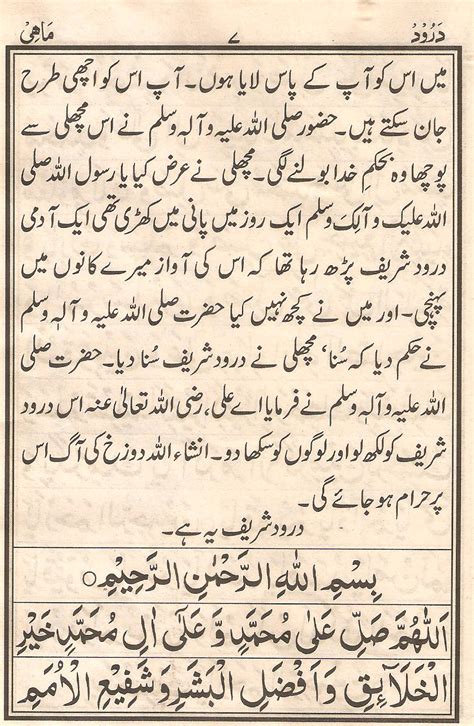 دَرُوْد ۷ مَاهِیْ
میں اس کو آپ کے پاس لایا ہوں۔ آپ اس کو اچھی طرح
جان سکتے ہیں۔ حضور صلی اللہ علیہ و آلہٖ وسلم نے اس مچھلی سے
پوچھا وہ بحکمِ خدا بولنے لگی۔ مچھلی نے عرض کیا یا رسول اللہ صلی
اللہ علیک و آلک وسلم ایک روز میں پانی میں کھڑی تھی ایک آدمی
درود شریف پڑھ رہا تھا کہ اس کی آواز میرے کانوں میں
پہنچی۔ اور میں نے کچھ نہیں کیا حضرت صلی اللہ علیہ و آلہٖ وسلم
نے حکم دیا کہ سُنا، مچھلی نے درود شریف سُنا دیا۔ حضرت صلی
اللہ علیہ و آلہٖ وسلم نے فرمایا اے علی، رضی اللہ تعالیٰ عنہ اس درود
شریف کو لکھ لو اور لوگوں کو سکھا دو۔ انشاء اللہ دوزخ کی آگ اس
پر حرام ہو جائے گی۔
درود شریف یہ ہے۔
بِسْمِ اللهِ الرَّحْمٰنِ الرَّحِيْمِ ○
اَللّٰهُمَّ صَلِّ عَلٰى مُحَمَّدٍ وَّ عَلٰٓى اٰلِ مُحَمَّدٍ خَيْرِ
الْخَلَآئِقِ وَ اَفْضَلِ الْبَشَرِ وَ شَفِيْعِ الْاُمَمِ